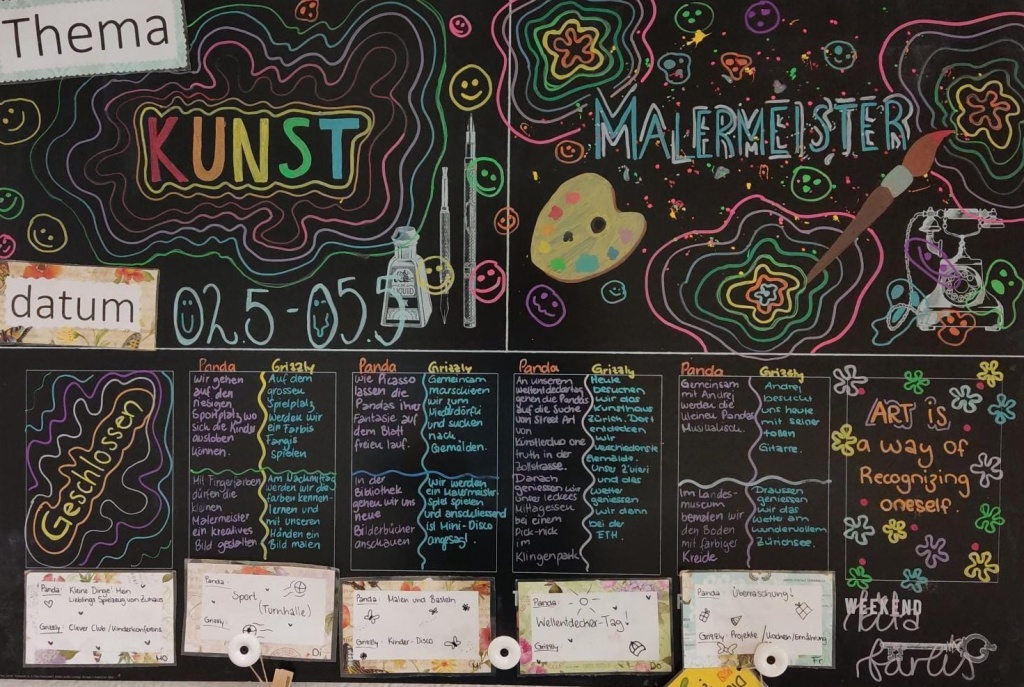 Thema
KUNST
MALERMEISTER
datum
02.5 - 05.5
LIQUID
Geschlossen
Panda
Wir gehen
auf den
riesigen
Sportplatz, wo
sich die Kinder
austoben
können.
Mit Fingerfarben
dürfen die
kleinen
Malermeister
ein kreatives
Bild gestalten
Grizzly
Auf dem
grossen
Spielplatz
werden wir
ein Farbis
Fangis
spielen
Am Nachmittag
werden wir die
Farben kennen-
lernen und
mit unseren
Händen ein
Bild malen
Panda
Wie Picasso
lassen die
Pandas ihrer
Fantasie auf
dem Blatt
freien lauf.
In der
Bibliothek
gehen wir uns
neue
Bilderbücher
anschauen
Grizzly
Gemeinsam
marschieren
wir zum
und suchen
nach
Gemälden.
Wir werden
ein Malermeister-
Spiel spielen
und anschliessend
ist Mini-Disco
angesagt
Panda
An unserem
weltentdeckertag
gehen die Pandas
auf die Suche
von Street Art
von
Künstlerduo one
truth in der
Zollstrasse.
Danach
geniessen wir
unser leckeres
Mittagessen
bei einem
Pick-nick
im
Klingenpark
Grizzly
Heute
besuchen
wir das
Kunsthaus
Zürich. Dort
entdecken
wir
verschiedenste
Gemälde.
Unser Z'vieri
und das
Wetter
geniessen
wir dann
bei der
ETH.
Panda
Gemeinsam
mit Andrej
werden die
kleinen Pandas
Musikalisch.
Im Landes-
museum
bemalen wir
den Boden
mit farbiger
Kreide
Grizzly
Andrej
besucht
uns heute
mit seiner
tollen
Gitarre.
Draussen
geniessen
wir das
Wetter am
wundervollen
Zürichsee.
ART is
a way of
Recognizing
oneself.
Panda: Kleine Dinge! Mein
Lieblings Spielzeug von Zuhaus
Grizzly: Clever Club / Kinderkonferenz
Mo
Panda:
Sport
(Turnhalle)
Grizzly:
Di
Panda: Malen und Basteln
Grizzly: Kinder-Disco
Mi
Panda:
Weltentdecker-Tag!
Grizzly:
Do
Panda: Überraschung!
Grizzly: Projekte / Kochen/Ernährung
Fr
WEEKEND